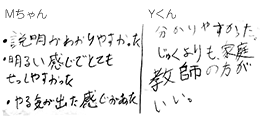 Mちゃん
・説明がわかりやすかった
・明るい感じでとても
せっしやすかった
・やる気が出た感じがあった
Yくん
分かりやすかった。
じゅくよりも、家庭
教師の方が
いい。